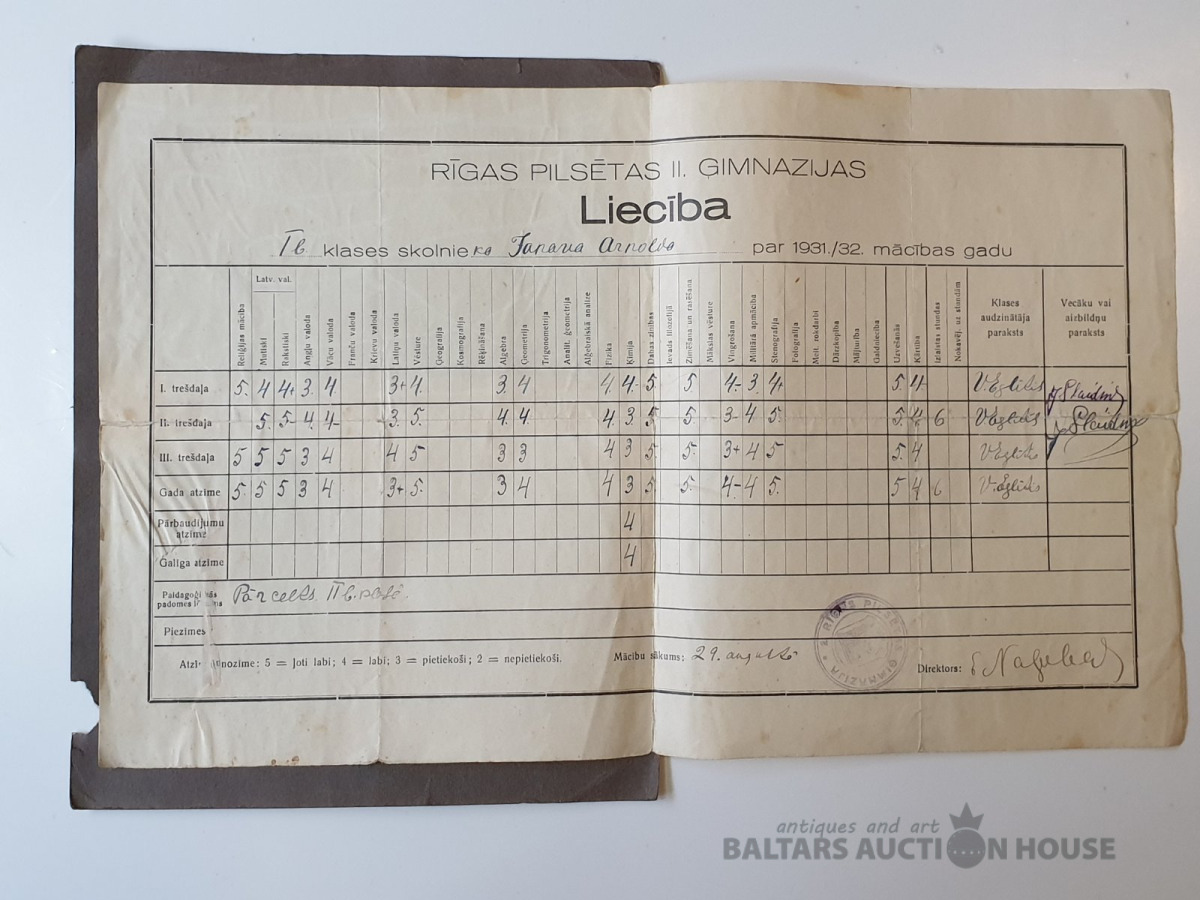 RĪGAS PILSĒTAS II. ĢIMNAZIJAS
Liecība
Ib klases skolnieka Arnolda par 1931./32. mācības gadu
Reliģijas mācība
Latv. val.
Mutiski
Rakstiski
Angļu valoda
Vācu valoda
Franču valoda
Krievu valoda
Latiņu valoda
Vēsture
Ģeografija
Kosmografija
Rēķināšana
Algebra
Ģeometrija
Trigonometrija
Analit. ģeometrija
Alģebraiskā analize
Fizika
Ķīmija
Dabas zinības
Ievads filozofijā
Zīmēšana un rasēšana
Mākslas vēsture
Vingrošana
Militārā apmācība
Stenografija
Fotografija
Meit. rokdarbi
Dārzkopība
Mājturība
Galdniecība
Uzvešanās
Kārtība
Izlaistas stundas
Nokavēj. uz stundām
Klases audzinātāja paraksts
Vecāku vai aizbildņu paraksts
I. trešdaļa 5. 4 4+ 3. 4 3+ 4. 3 4 4 4- 5. 5 4- 3. 4+ 5. 4- V. Eglītis
II. trešdaļa 5. 5- 4. 4- 3. 5. 4. 4. 4. 3. 5 5. 3- 4 5. 5. 4 6 V. Eglītis
III. trešdaļa 5 5 5 3 4 4 5. 3 3 4 3 5. 5. 3+ 4 5 5. 4 V. Eglītis
Gada atzīme 5. 5 5 3 4 3+ 5. 3 4 4 3 5. 5. 4- 4 5. 5 4 6 V. Eglītis
Pārbaudījumu atzīme 4
Galīga atzīme 4
Paidagoģiskās padomes Pārcelts IIb. klasē.
Piezīmes
5 = ļoti labi; 4 = labi; 3 = pietiekoši; 2 = nepietiekoši.
Mācību sākums: 29. augusts
RĪGAS PILSĒTAS ĢIMNAZIJA
Direktors:
antiques and art
BALTARS AUCTION HOUSE